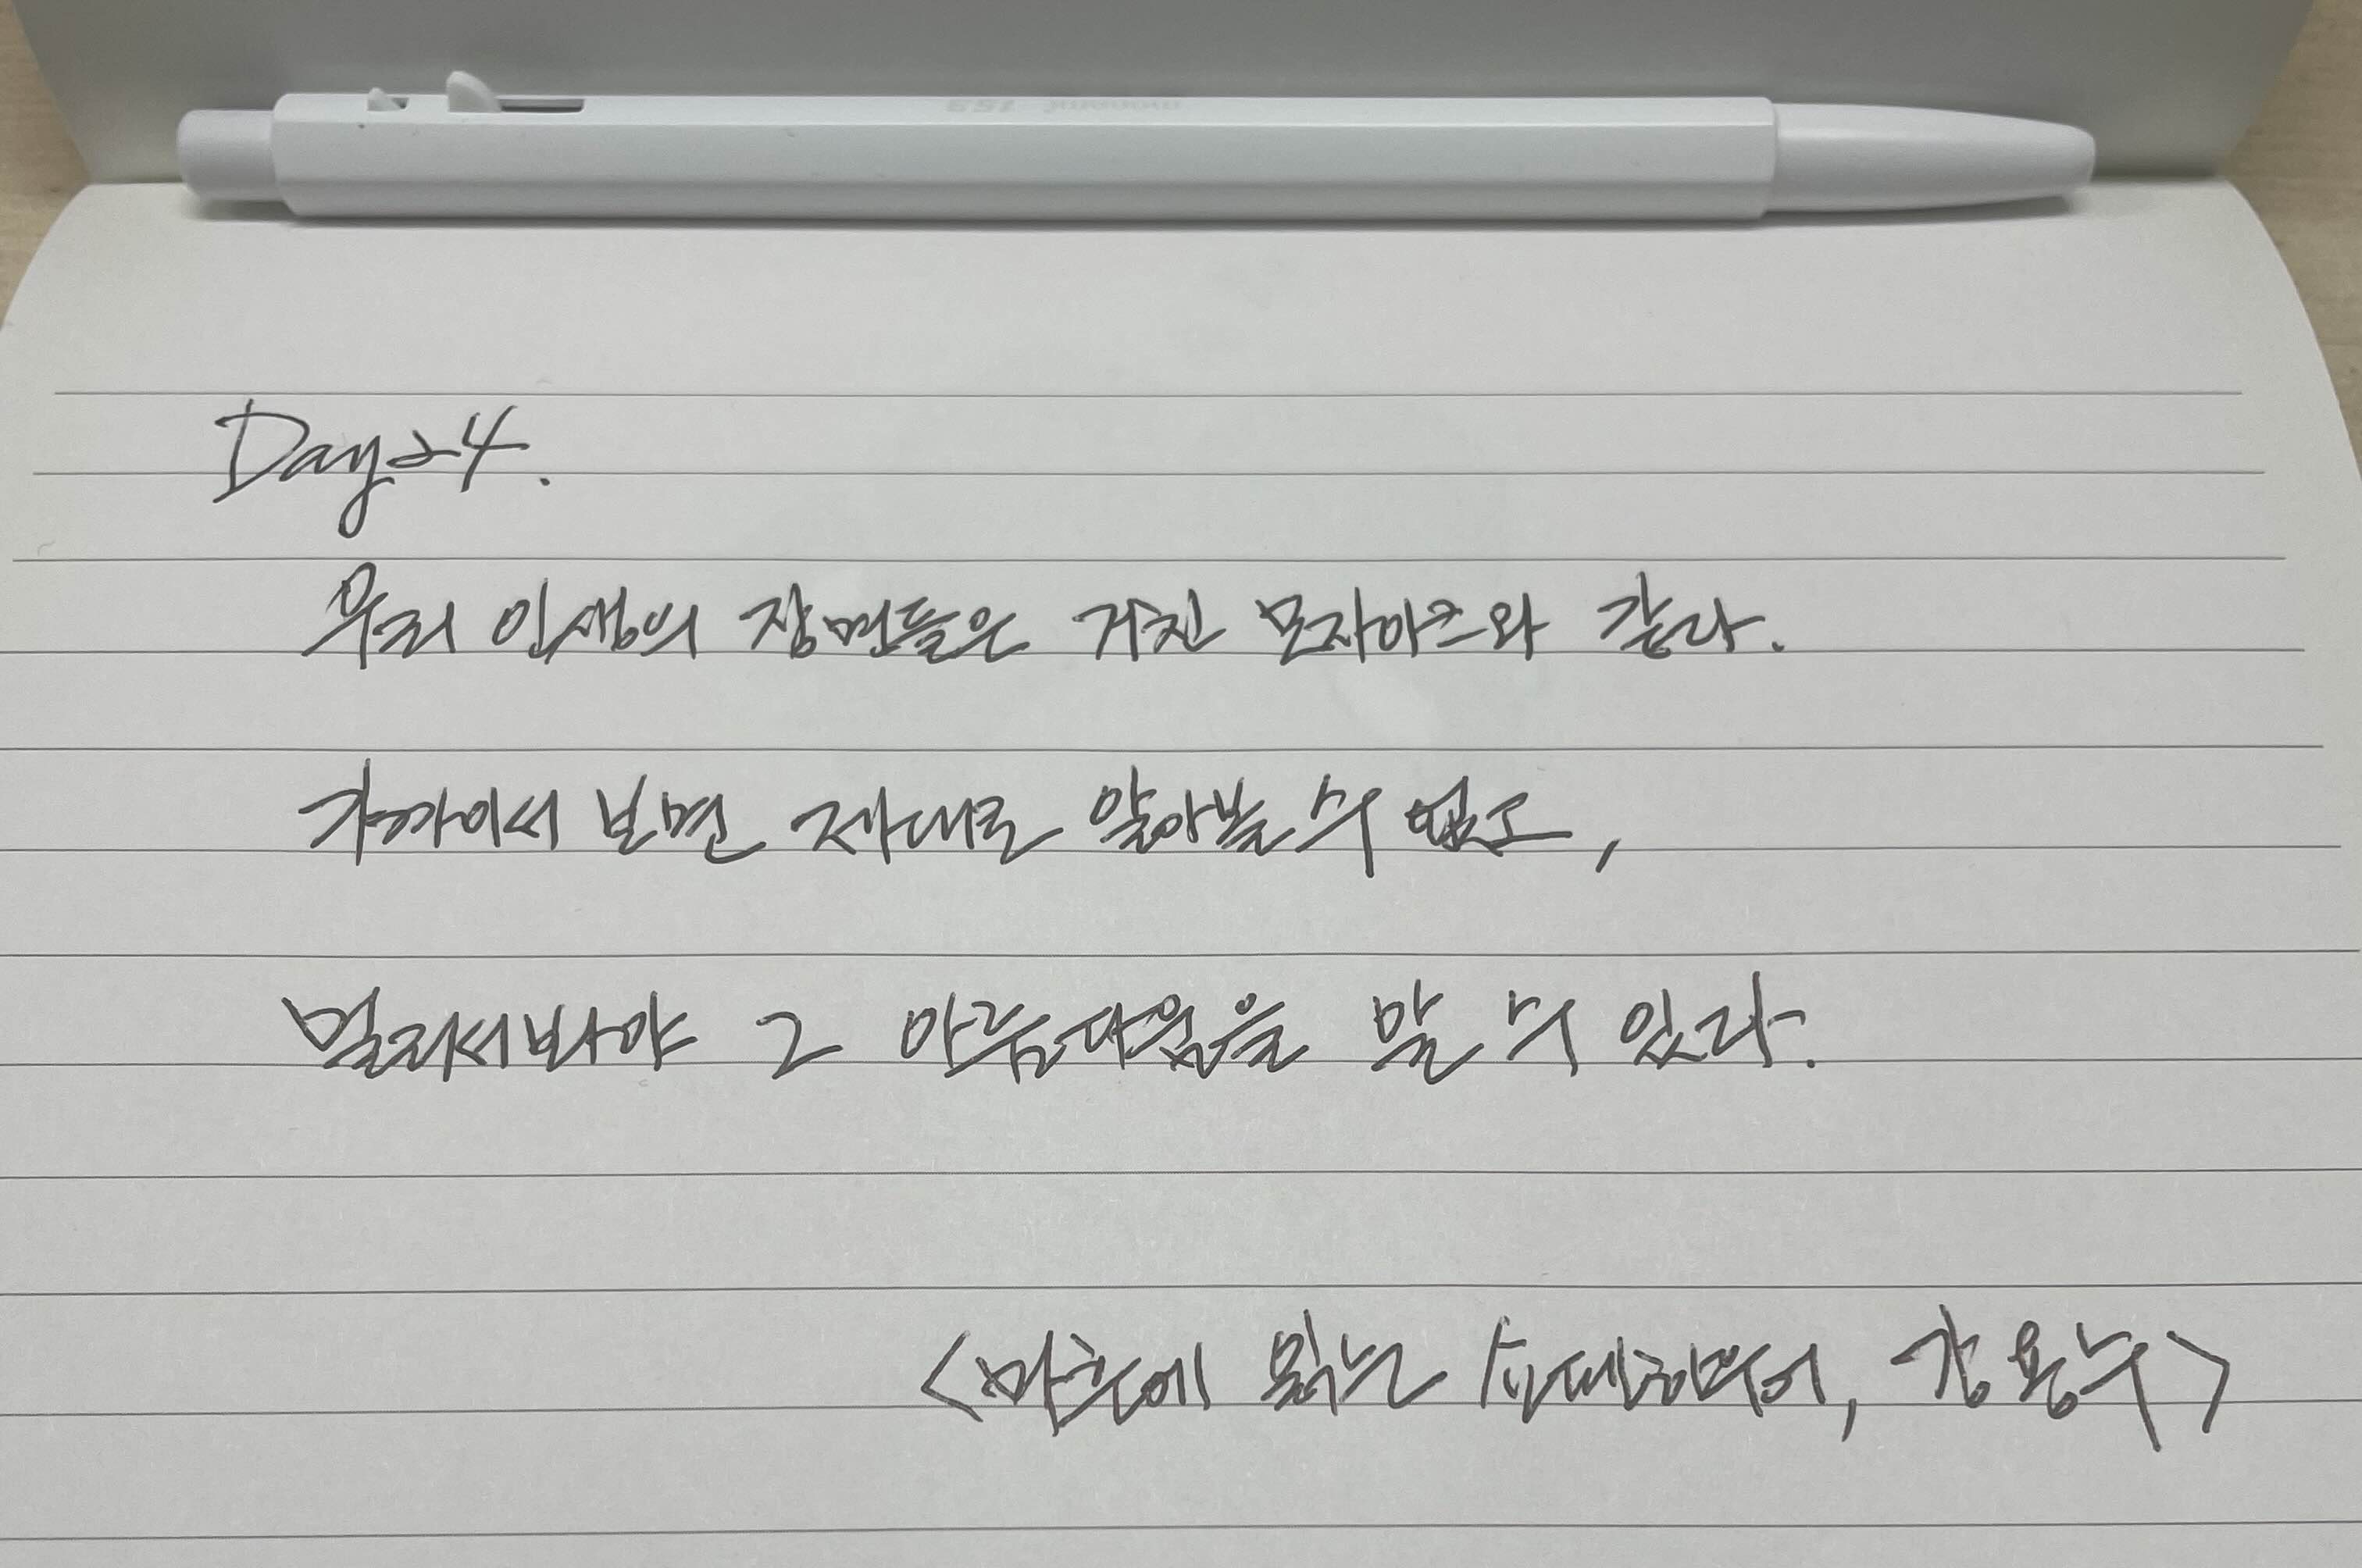 Day 24.
우리 인생의 장면들은 거친 모자이크와 같다.
가까이서 보면 제대로 알아볼 수 없고,
멀리서봐야 그 아름다움을 알 수 있다.
<마흔에 읽는 쇼펜하우어, 강용수>
monami 153